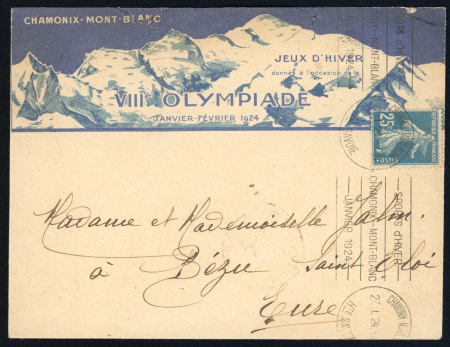 CHAMONIX-MONT-BLANC
JEUX D'HIVER
donnés à l'occasion de la
VIIIe OLYMPIADE
JANVIER-FÉVRIER 1924
25c
POSTES
SAVOIE
Madame et Mademoiselle
à Bézu Saint Éloi
Eure
SPORTS d'HIVER
CHAMONIX-MONT-BLANC
JANVIER 1924
CHAMONIX
27 1 24
HTE SAVOIE